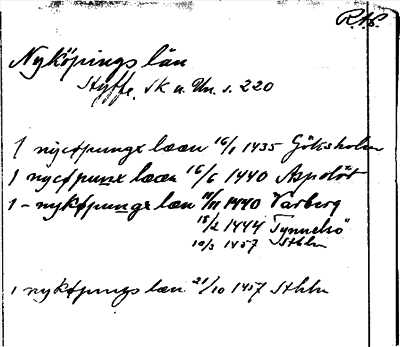 R.A.P.
Nyköpings län
Styffe, Sk u Un. s. 220
I nycøpungx læen 16/1 1435 Göksholm
I nycøpunx læen 16/6 1440 Aspolöt
1 - nykøpungx læn 11/11 1440 Varberg
18/2 1444 Tynnelsö
10/3 1457 Sthlm
1 nykøpungs læn 21/10 1457 Sthlm